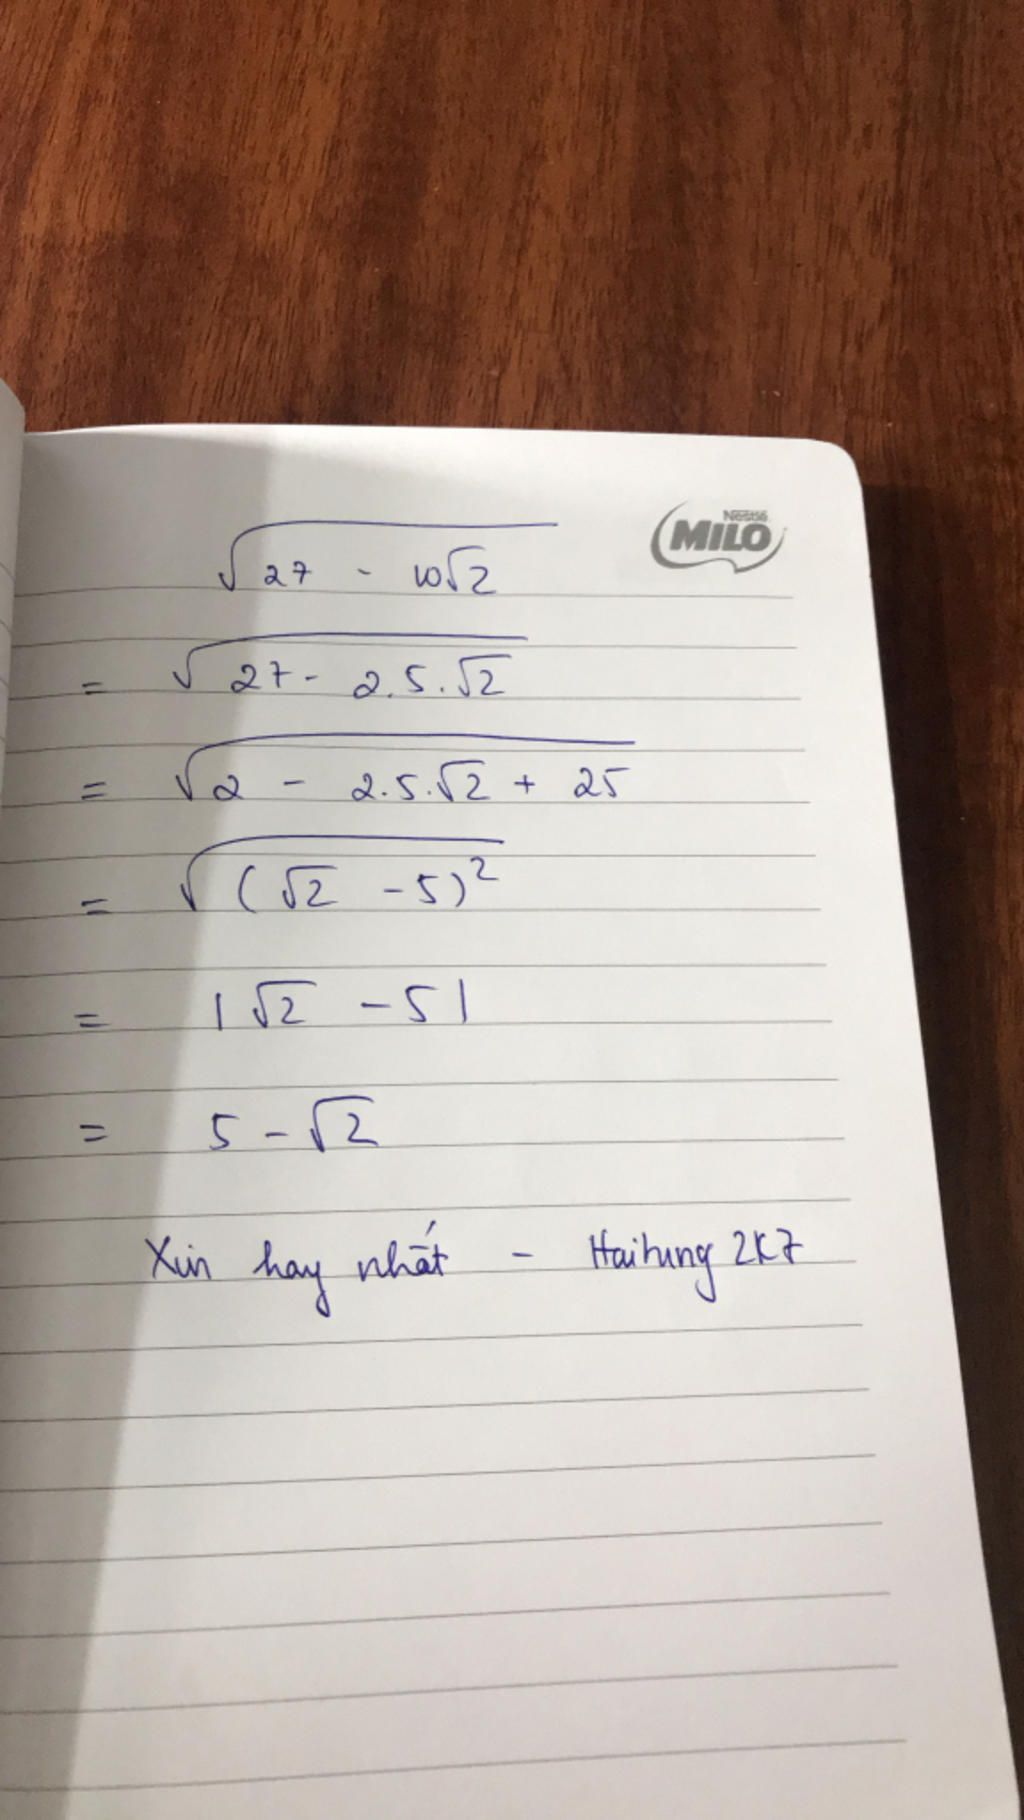 Nestlé
MILO
√(27 - 10√2)
= √(27 - 2.5.√2)
= √(2 - 2.5.√2 + 25)
= √((√2 - 5)²)
= |√2 - 5|
= 5 - √2
Xin hay nhất - Haitung 2K7